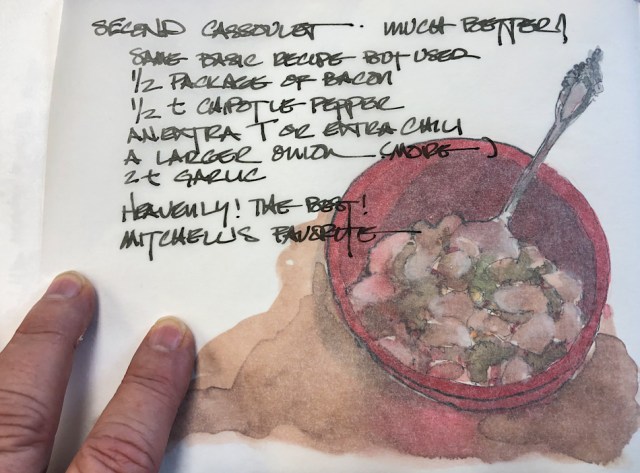 SECOND CASSOULET - MUCH BETTER!
SAME BASIC RECIPE BUT USED
1/2 PACKAGE OF BACON
1/2 t CHIPOTLE PEPPER
AN EXTRA T OR EXTRA CHILI
A LARGER ONION (MORE)
2 t GARLIC
HEAVENLY! THE BEST!
MITCHELL'S FAVORITE